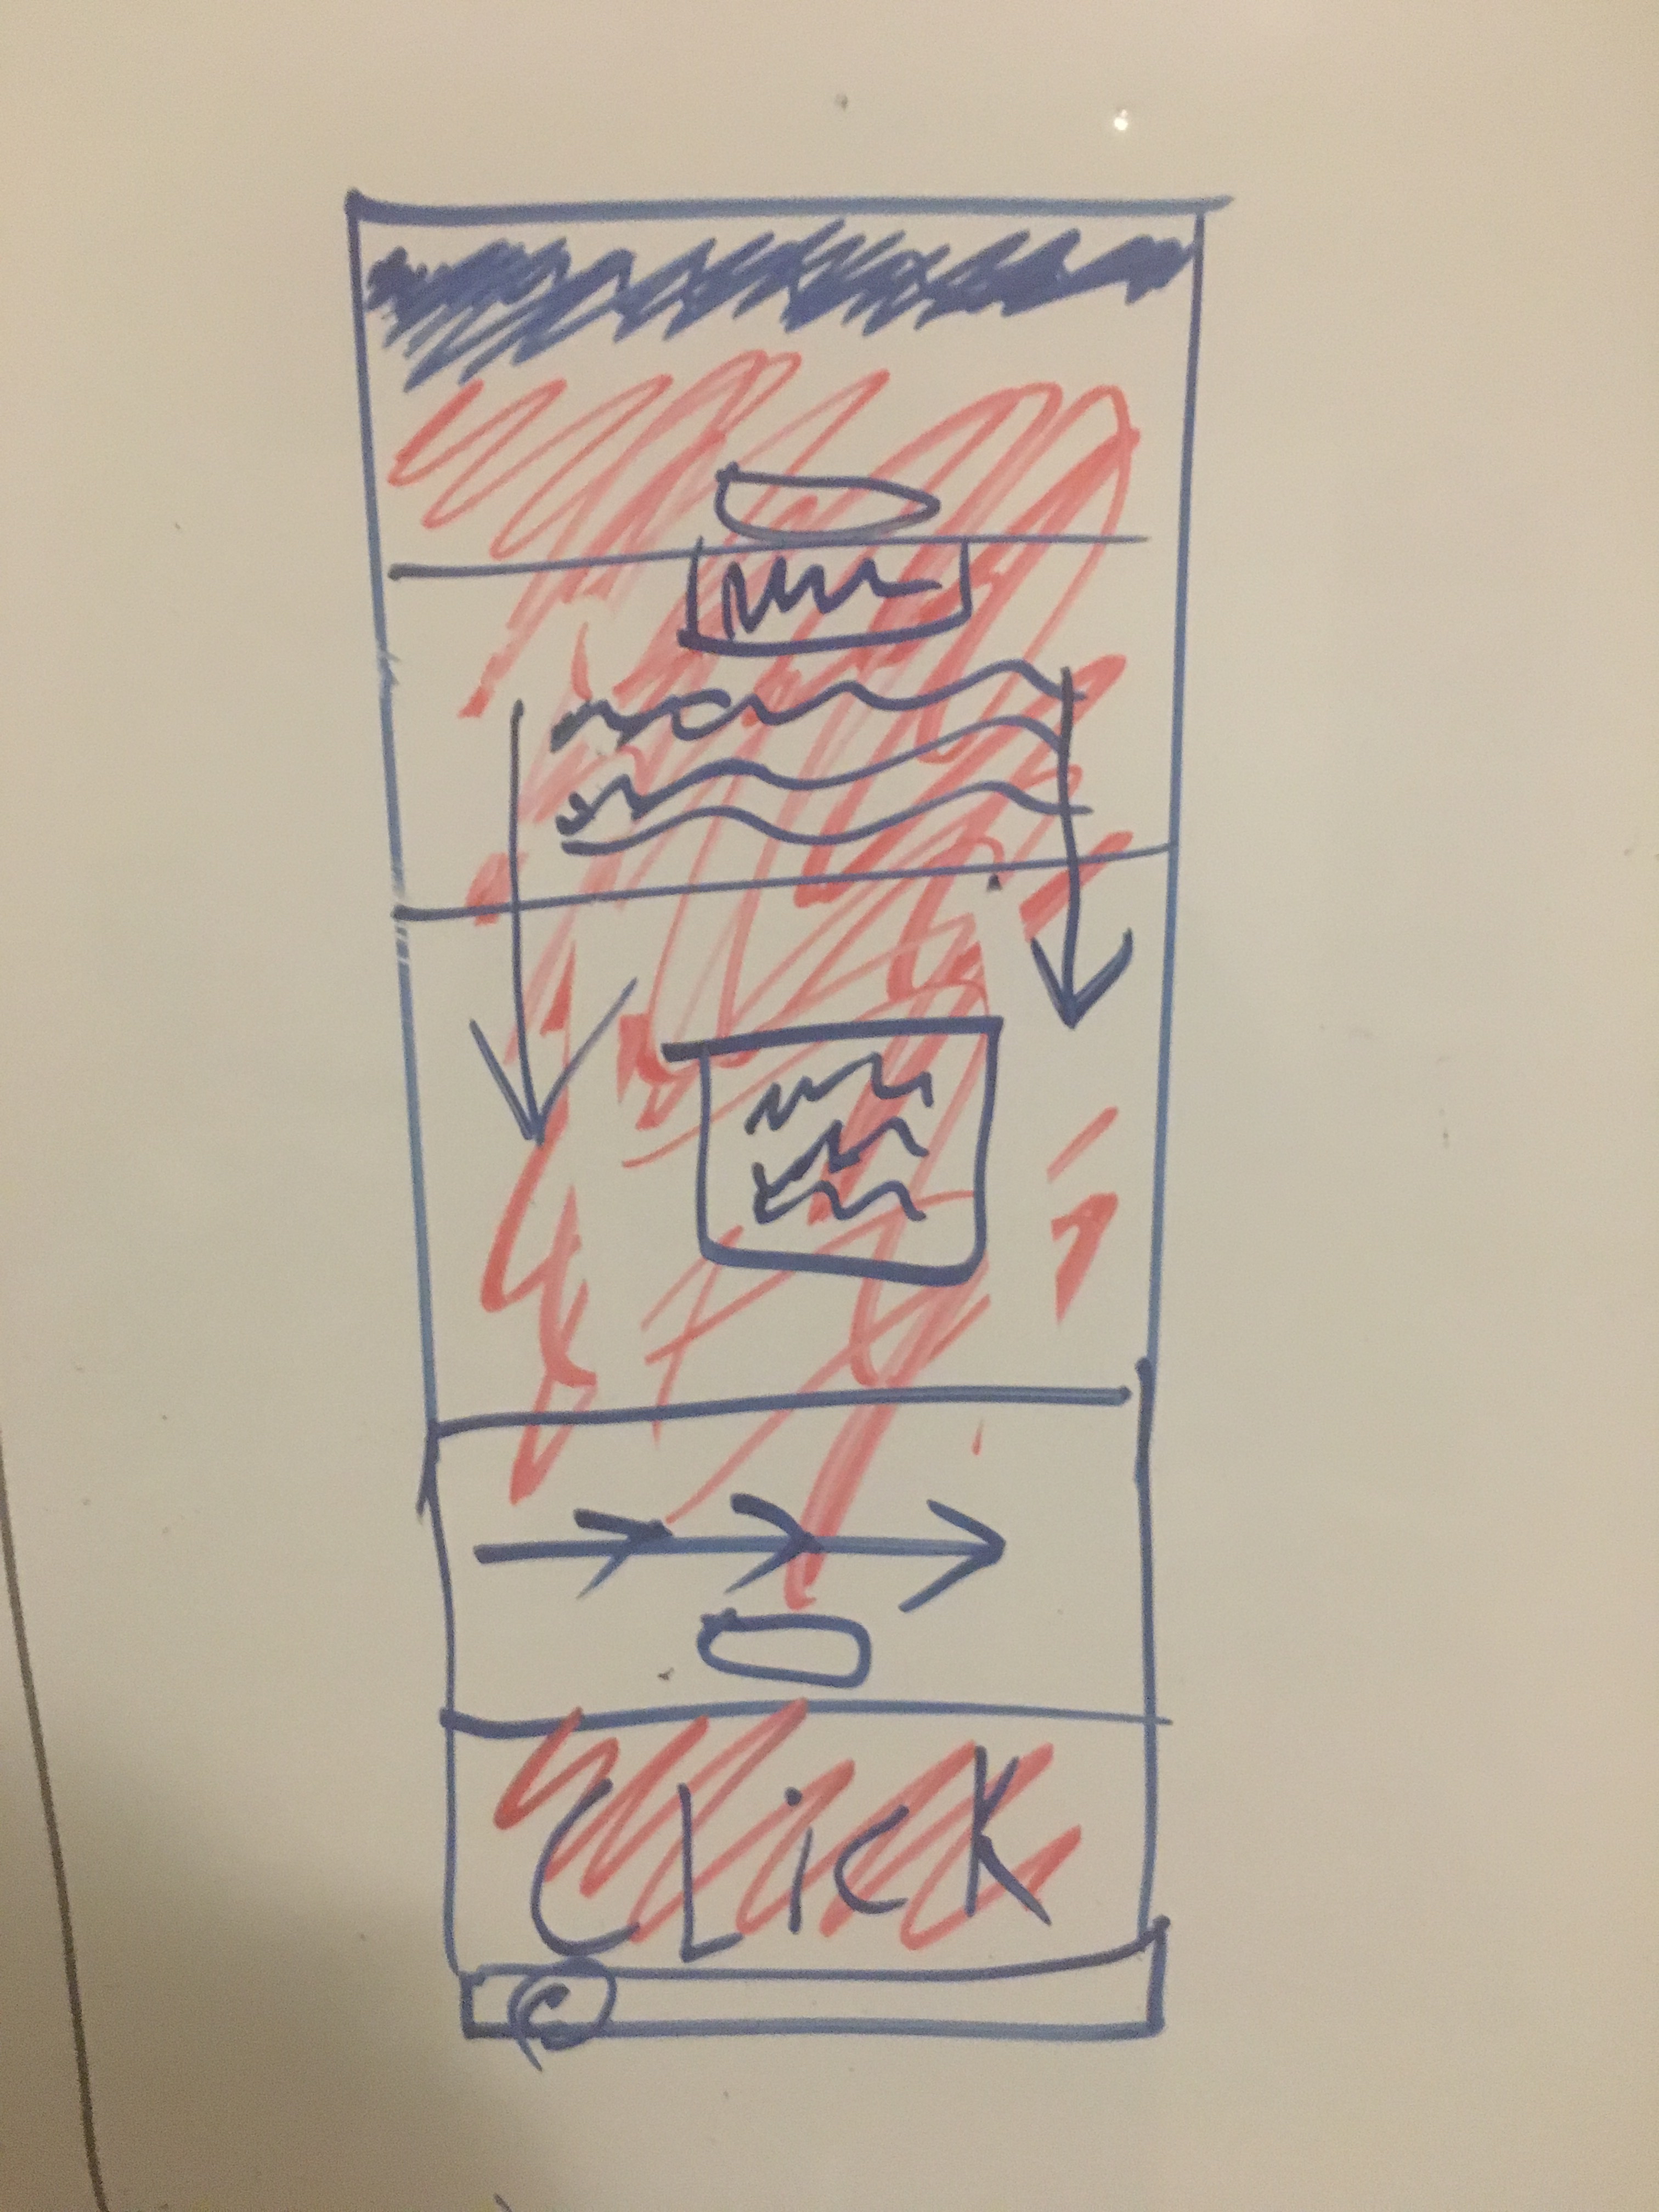 CLicK
©